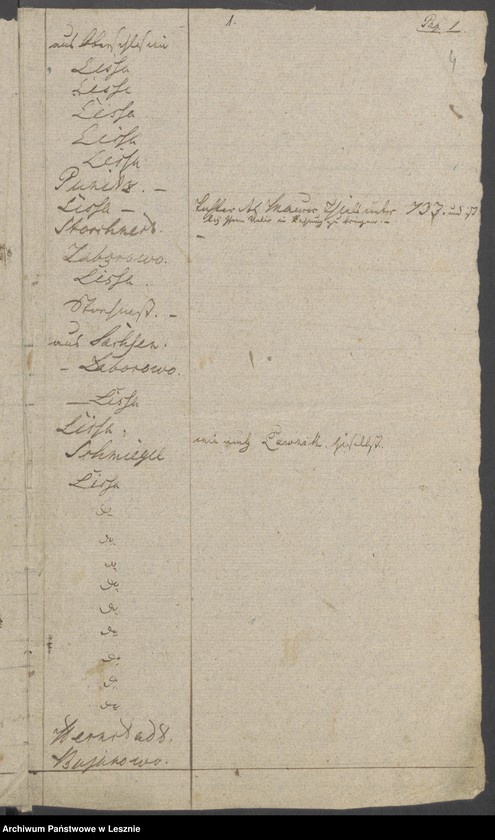 1.
Pag. 1
4
aus Oberschlesien
Lissa
Lissa
Lissa
Lissa
Lissa
Punitz. -
Lissa -
737. und ist
Storchnest.
Zaborowo.
Lissa.
Storchnest. -
aus Sachsen.
- Zaborowo.
- Lissa
Lissa.
Schmiegel
Lissa
do
do
do
do
do
do
do
do
do
Bojanowo.
Archiwum Państwowe w Lesznie